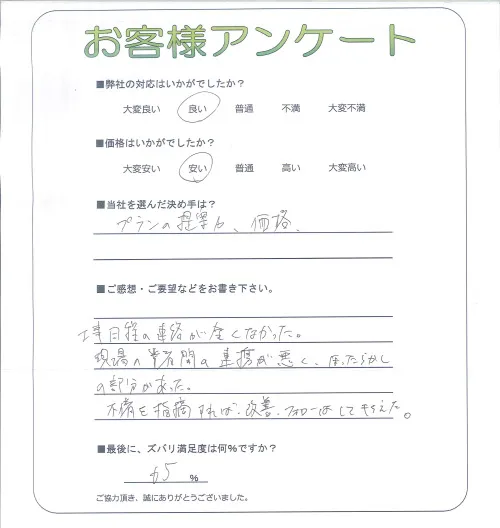 お客様アンケート
■弊社の対応はいかがでしたか？
大変良い 良い 普通 不満 大変不満
■価格はいかがでしたか？
大変安い 安い 普通 高い 大変高い
■当社を選んだ決め手は？
プランの提案力、価格、
■ご感想・ご要望などをお書き下さい。
工事日程の連絡が全くなかった。
現場の業者間の連携が悪く、ほったらかし
の部分があった。
不備を指摘すれば、改善、フォローはしてもらえた。
■最後に、ズバリ満足度は何％ですか？
65 ％
ご協力頂き、誠にありがとうございました。